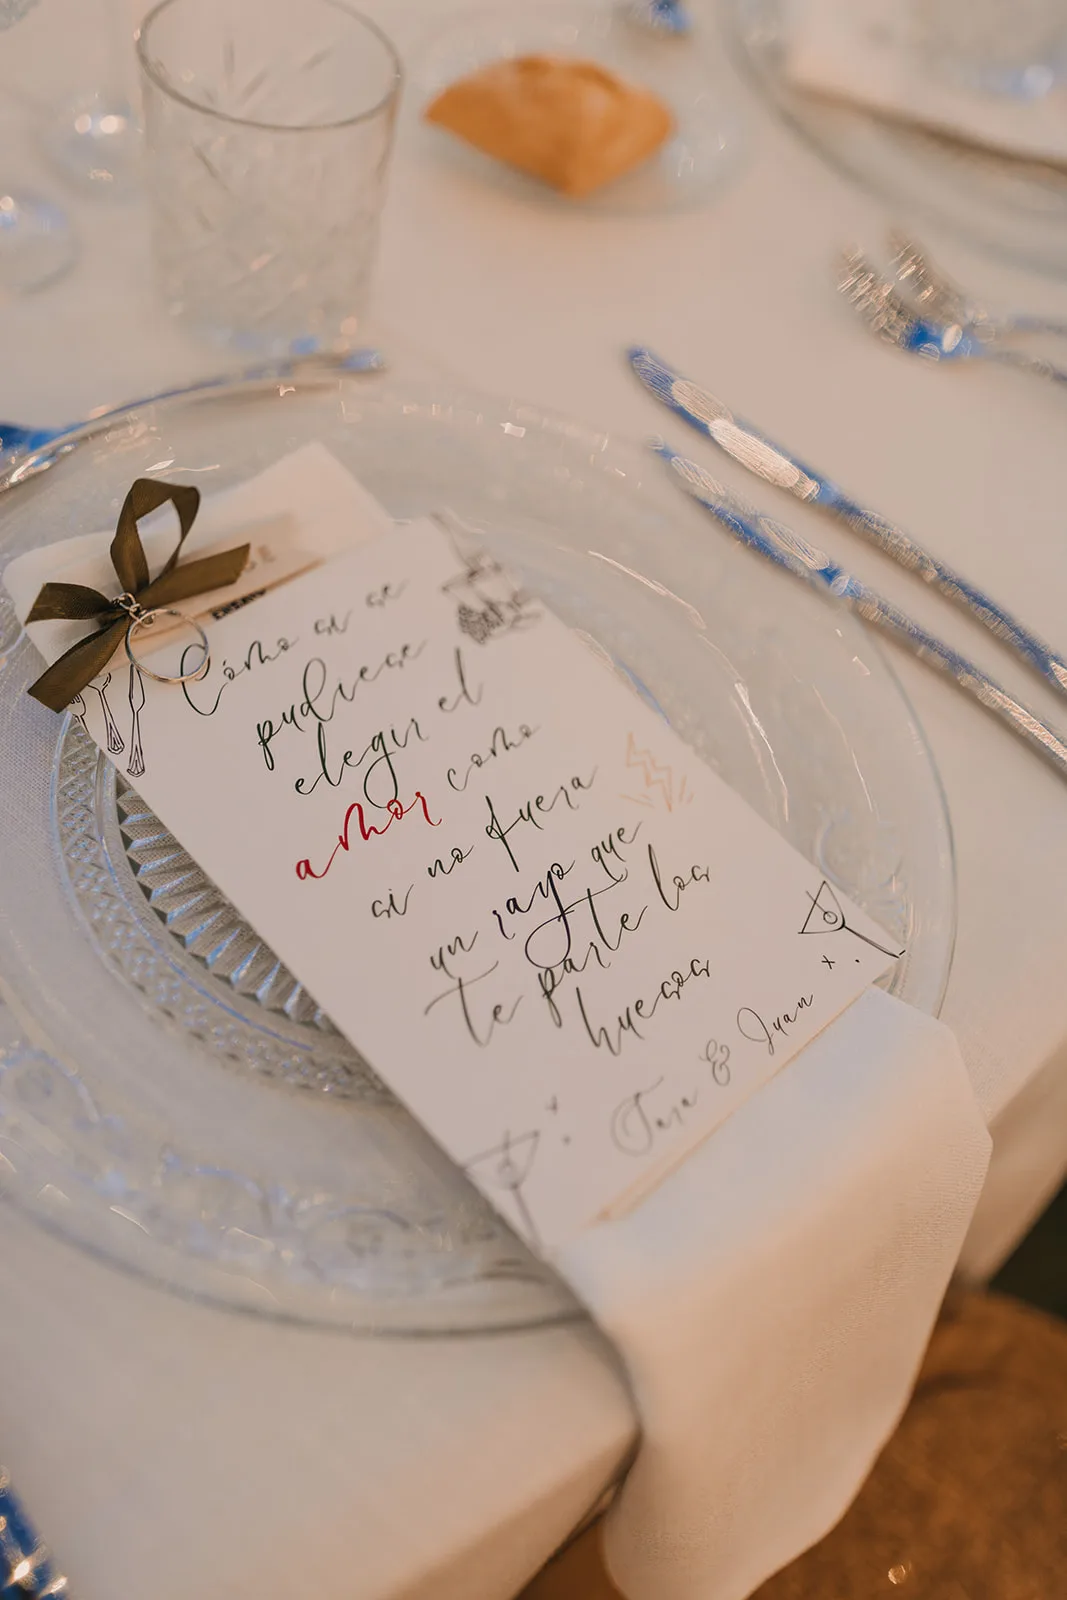 Cómo si se
pudiese
elegir el
amor como
si no fuera
un rayo que
te parte los
huesos
Tara & Juan